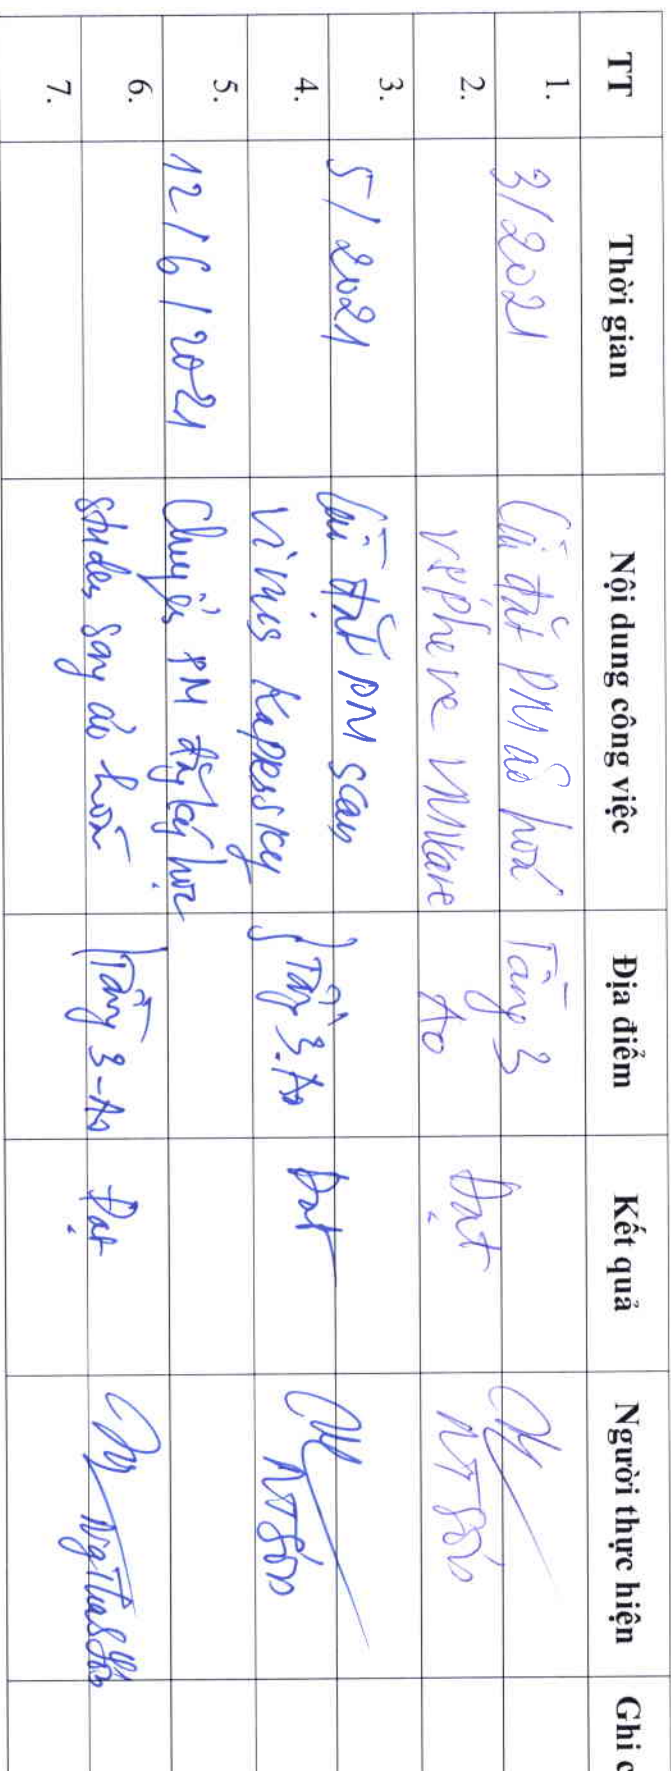 TT Thời gian Nội dung công việc Địa điểm Kết quả Người thực hiện Ghi c
1. 3/2021 Cài đặt PM ảo hoá Tầng 3
2. VSPhere VMWare A0 Đạt NTSơn
3. 5/2021 Cài đặt PM scan
4. Virus Kapessky Tầng 3.A0 Đạt NTSơn
5. 12/6/2021 Chuyển PM đăng ký học
6. sang ảo hoá Tầng 3-A0 Đạt
7.